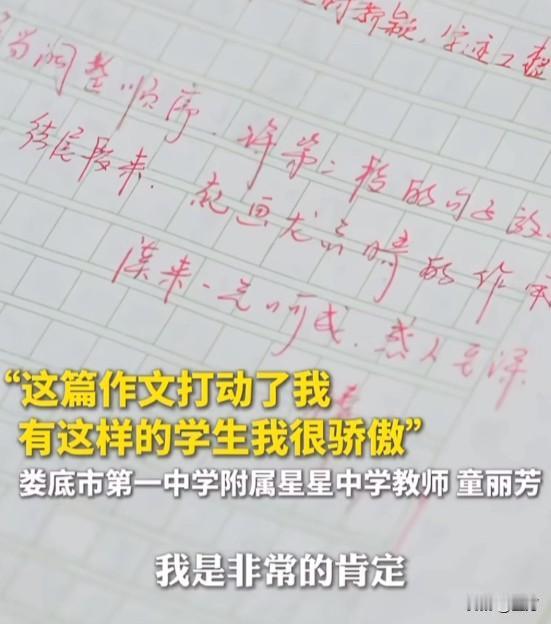 字迹工整
当调整顺序，将第二段的句子放
结尾段来，起画龙点睛的作用
读来一气呵成，感人至深
“这篇作文打动了我
有这样的学生我很骄傲”
娄底市第一中学附属星星中学教师 童丽芳
我是非常的肯定